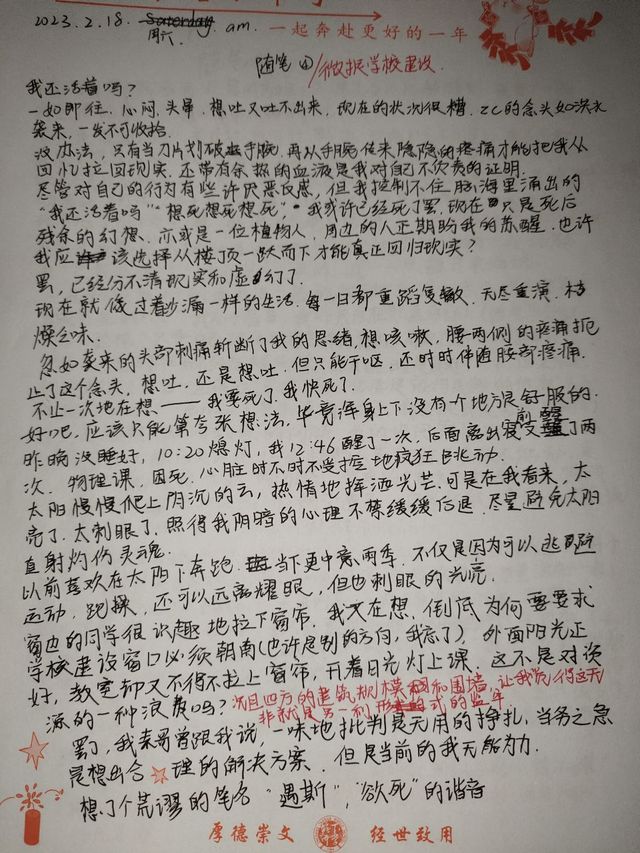 一起奔赴更好的一年
2023.2.18. Saturday. am.
周六
随笔④/微揼学校建设.
我还活着吗?
一如即往.心闷.头晕.想吐又吐不出来,现在的状况很糟.zc的念头如洪水
袭来,一发不可收拾.
没办法,只有当刀片划破手腕,再从手腕传来隐隐的疼痛才能把我从
回忆拉回现实.还带有余热的血液是我对自己不负责的证明.
尽管对自己的行为有些许厌恶反感,但我控制不住脑海里涌出的
“我还活着吗”“想死想死想死”,我或许已经死了罢,现在只是死后
残余的幻想.亦或是一位植物人,周边的人正期盼我的苏醒.也许
我应该选择从楼顶一跃而下才能真正回归现实?
罢,已经分不清现实和虚幻了.
现在就像过着沙漏一样的生活.每一日都重蹈复辙.无尽重演.枯
燥乏味.
忽如袭来的头部刺痛斩断了我的思绪.想咳嗽,腰两侧的疼痛扼
止了这个念头,想吐,还是想吐.但只能干呕.还时时伴随腰部疼痛.
不止一次地在想——我要死了.我快死了.
好吧,应该只能算夸张想法,毕竟浑身上下没有一个地方是舒服的.
昨晚没睡好,10:20熄灯,我12:46醒了一次,后面离出寝前又醒了两
次.物理课,困死.心脏时不时不受控地疯狂跳动.
太阳慢慢爬上阴沉的云,热情地挥洒光芒.可是在我看来,太
亮了.太刺眼了.照得我阴暗的心理不禁缓缓后退.尽量避免太阳
直射灼伤灵魂.
以前喜欢在太阳下奔跑.当下更中意雨季.不仅是因为可以逃避
运动,跑操,还可以远离耀眼,但也刺眼的光亮.
窗边的同学很识趣地拉下窗帘.我又在想,倒底为何要要求
学校建设窗口必须朝南(也许是别的方向,我忘了).外面阳光正
好,教室却又不得不拉上窗帘,开着日光灯上课.这不是对资
源的一种浪费吗?况且四方的建筑规模和围墙,让我觉得这无
非就是另一种形式的监牢
罢了,我表哥曾跟我说,一味地批判是无用的挣扎,当务之急
是想出合理的解决方案.但是当前的我无能为力.
想了个荒谬的笔名“遇斯”,“欲死”的谐音
厚德崇文 经世致用